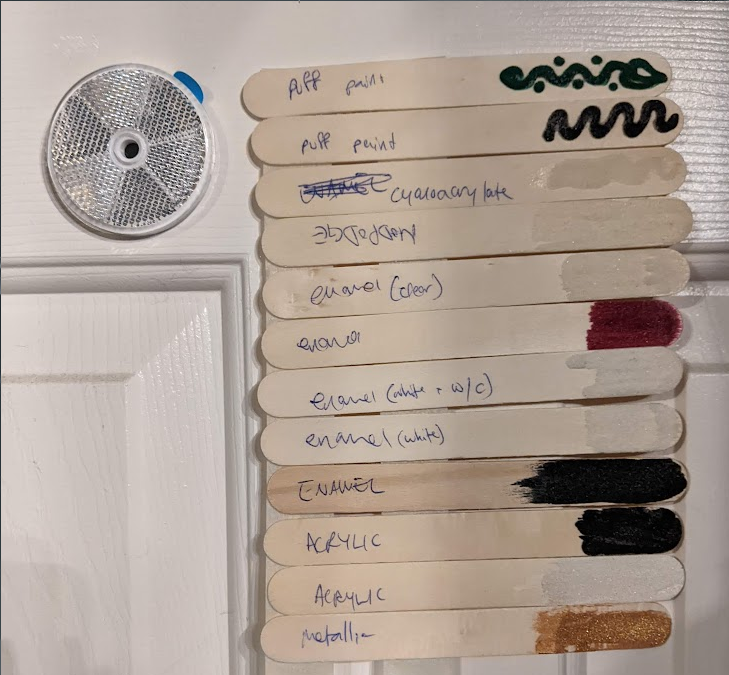 puff paint
puff paint
cyanoacrylate
MODPODGE
enamel (clear)
enamel
enamel (white + w/c)
enamel (white)
ENAMEL
ACRYLIC
ACRYLIC
metallic